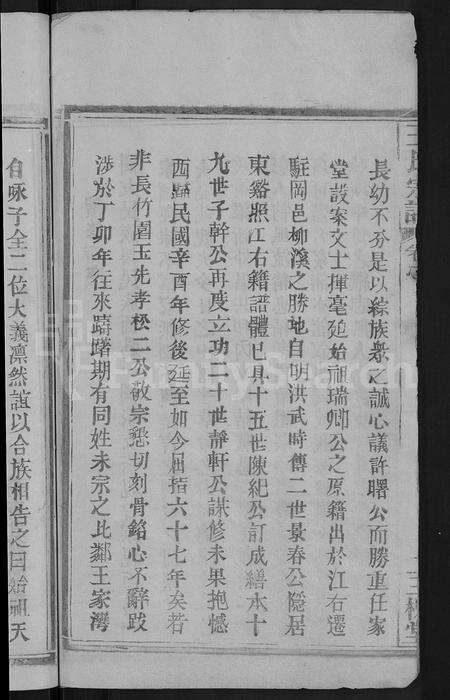 長幼不分是以綜族衆之誠心議許曙公而勝重任家
堂設案文士揮毫延始祖瑞卿公之原籍出於江右遷
駐岡邑柳溪之勝地自明洪武時傳二世景春公隱居
東谿照江右籍譜體已具十五世陳紀公訂成繕本十
九世子幹公再度立功二十世靜軒公謀修未果抱憾
西歸民國辛酉年修後延至如今屈指六十七年矣若
非長竹園玉先孝松二公敬宗懇切刻骨銘心不辭跋
涉於丁卯年往來躊躇期有同姓未宗之此鄰王家灣
自咏子全二位大義凜然誼以合族相告之曰始祖天
王氏宗譜
三槐堂
FamilySearch